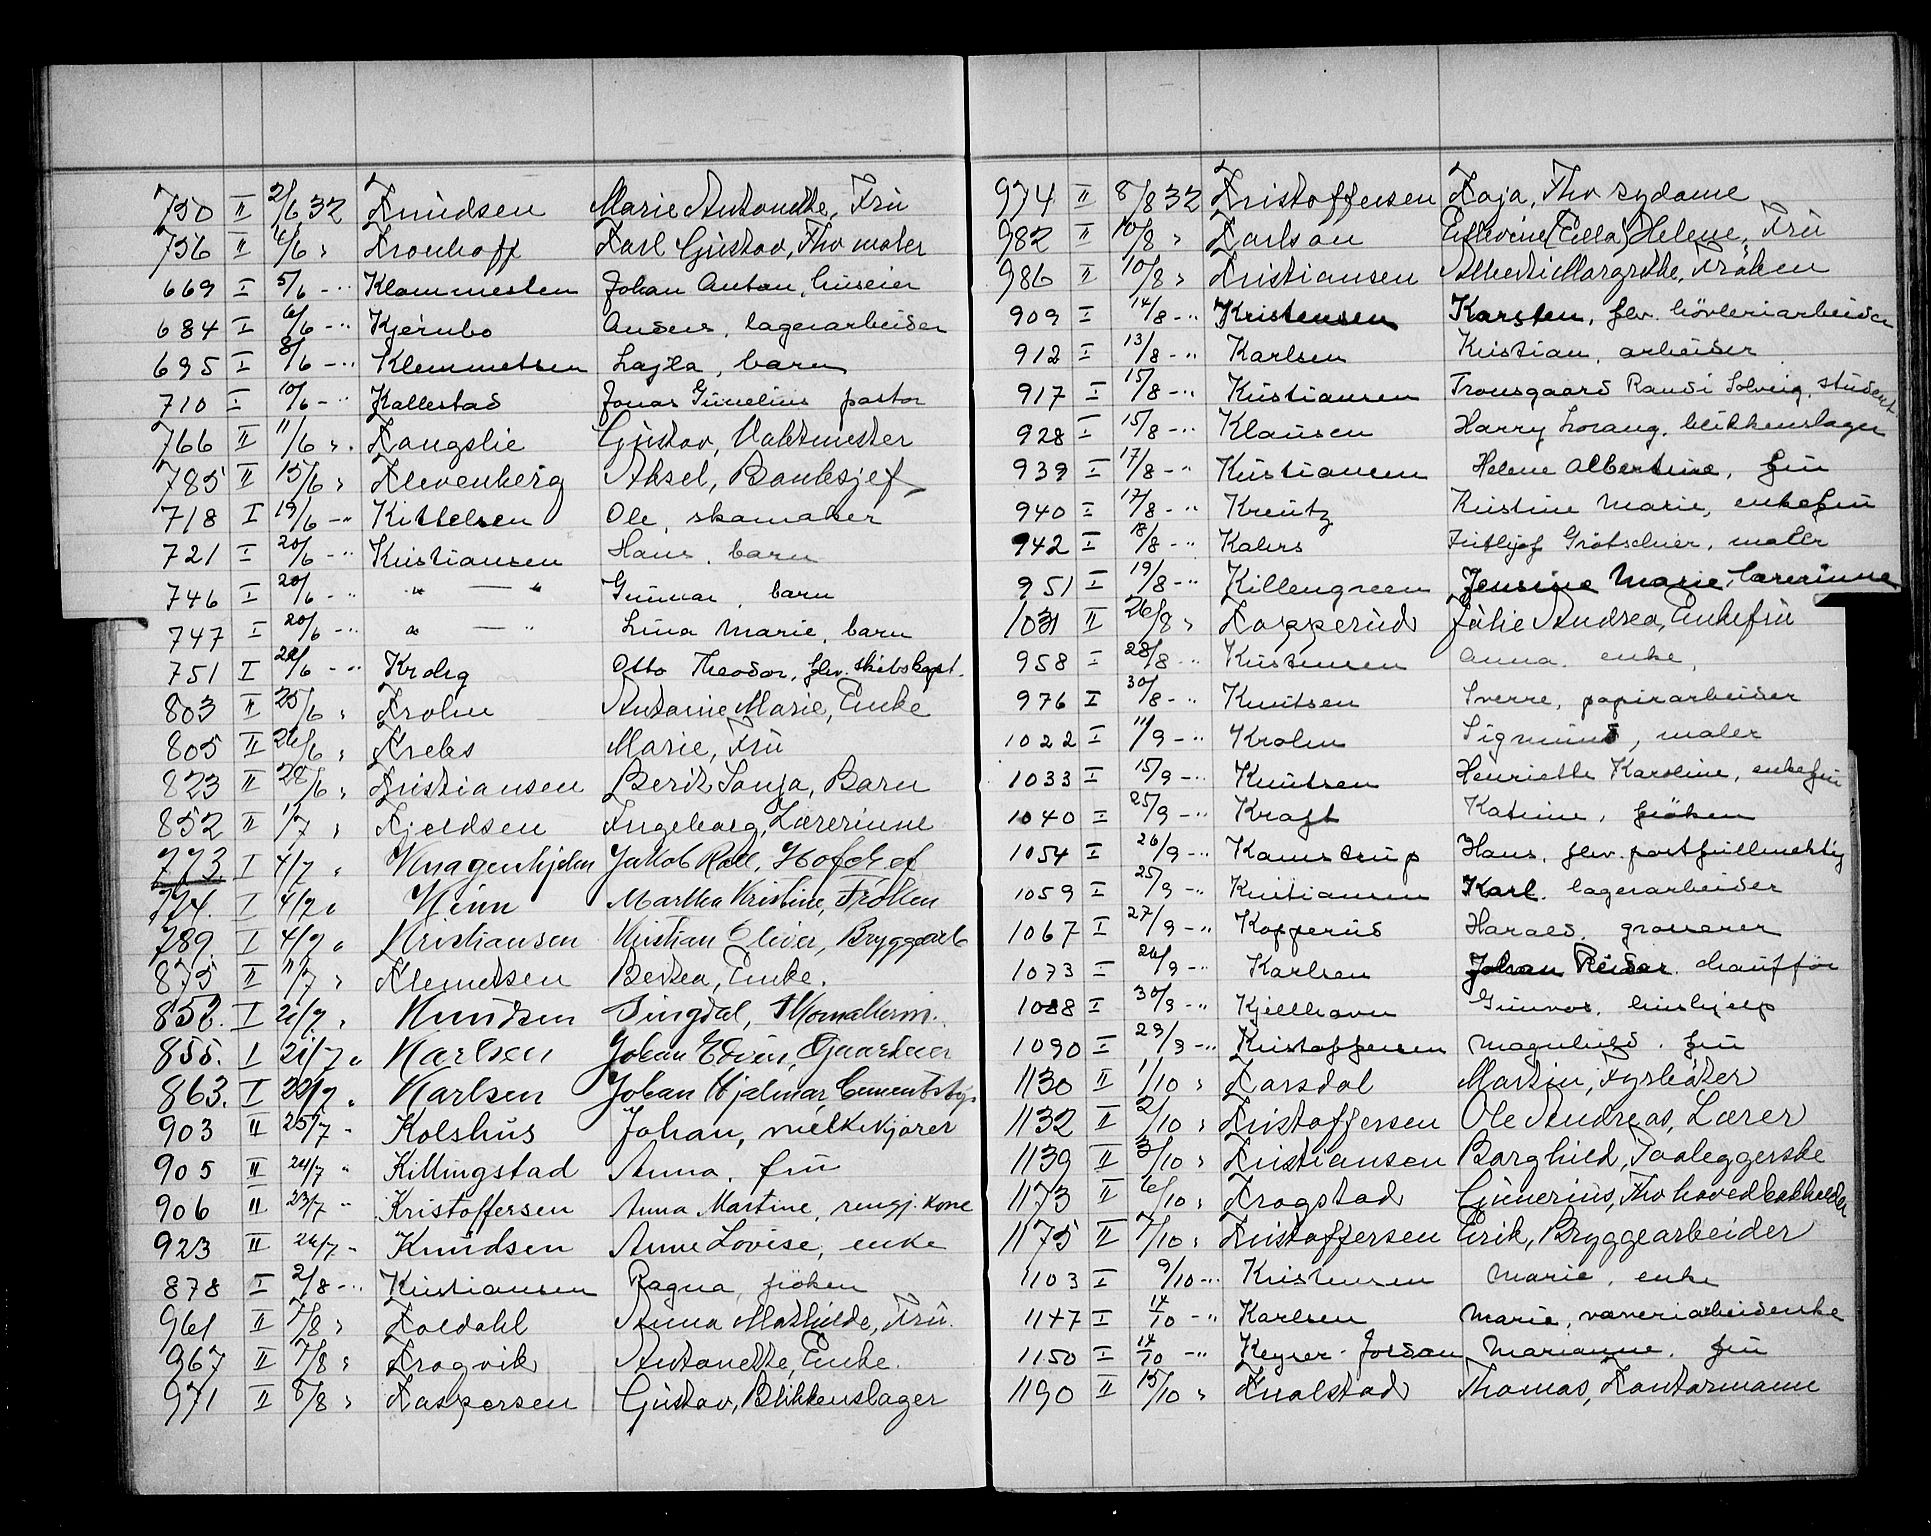 750 II 2/6 32 Knudsen Marie Antonette, Fru
756 II 4/6 " Kronhoff Karl Gustav, Fhv maler
669 I 5/6 -" Klommesten Johan Anton, huseier
684 I 6/6 -" Kjernbo Anders, lagerarbeider
695 I 8/6 -" Klemmetsen Lajla, barn
710 I 10/6 -" Kallestad Jonas Gunelius pastor
766 II 11/6 " Kongslie Gustav, Vaktmester
785 II 15/6 " Klevenberg Aksel, Banksjef
718 I 19/6 -" Kittelsen Ole, skomaker
721 I 20/6 -" Kristiansen Hans, barn
746 I 20/6 -" " — " Gunnar, barn
747 I 20/6 -" " — " Lina Marie, barn
751 I 22/6 -" Krohg Otto Theodor, fhv. skibskapt.
803 II 25/6 " Krohn Antonie Marie, Enke
805 II 26/6 " Krebs Marie, Fru
823 II 28/6 " Kristiansen Berit Sonja, Barn
852 II 1/7 " Kjeldsen Ingeborg, Lærerinne
773. I 4/7 " Knagenhjelm Jakob Roll, Hofchef
774. I 4/7 " Kinn Martha Kristine, Frøken
789. I 4/7 " Kristiansen Kristian Oliver, Bryggearb
875 II 11/7 " Klemetsen Bertea, Enke.
852. I 21/7 " Knudsen Singdal,
855. I 21/7 " Karlsen Johan Edvin, Gaardeier
863. I 22/7 " Karlsen Johan Hjalmar, Cementstøp.
903 II 25/7 " Kolshus Johan, melkekjører
905 II 24/7 " Killingstad Anna, fru
906 II 23/7 " Kristoffersen Anna Martine, rengj. kone
923 II 26/7 " Knudsen Anne Lovise, enke
878 I 2/8 -" Kristiansen Ragna, frøken
961 II 7/8 " Koldahl Anna Mathilde, Fru.
967 II 7/8 " Krogvik Antonette, Enke.
971 II 8/8 " Kaspersen Gustav, Blikkenslager
974 II 8/8 32 Kristoffersen Kaja, Fhv sydame
982 II 10/8 " Karlson (Ella) Helene, Fru
986 II 10/8 " Kristiansen Alberti Margrethe, Frøken
909 I 14/8 -" Kristensen Karsten, fhv. høvleriarbeider
912 I 13/8 -" Karlsen Kristian, arbeider
917 I 15/8 -" Kristiansen Tronsgaard Randi Solveig, student
928 I 15/8 -" Klausen Harry Lorang, blikkenslager
939 I 17/8 -" Kristiansen Helene Albertine, fru
940 I 17/8 -" Kreutz Kristine Marie, enkefru
942 I 18/8 -" Kahrs Fritljof Grøtschier, maler
951 I 19/8 -" Killengreen Jensine Marie, lærerinne
1031 II 26/8 " Kopperud Julie Andrea, Enkefru
958 I 28/8 -" Kristensen Anna, enke,
976 I 30/8 -" Knutsen Sverre, papirarbeider
1022 I 11/9 -" Krohn Sigmund, maler
1033 I 15/9 -" Knutsen Henriette Karoline, enkefru
1040 I 25/9 -" Kraft Katrine, frøken
1054 I 26/9 -" Kamstrup Hans, fhv. postfullmektig
1059 I 25/9 -" Kristiansen Karl, lagerarbeider
1067 I 27/9 -" Kopperud Harald, grosserer
1073 I 26/9 -" Karlsen Johan Reidar, chauffør
1088 I 30/9 -" Kjellhavn Gunvor, hushjelp
1090 I 29/9 -" Kristoffersen Magnhild, fru
1130 II 1/10 " Karsdal Martin, Fyrbøter
1132 II 2/10 " Kristoffersen Ole Andreas, Lærer
1139 II 3/10 " Kristiansen Borghild, Taaleggerske
1173 II 6/10 " Krogstad Gunerius, Fhv hovedbokholder
1175 II 7/10 " Kristoffersen Erik, Bryggearbeider
1103 I 9/10 -" Kristensen Marie, enke
1147 I 14/10 -" Karlsen Marie, væveriarbeiderske
1150 I 14/10 -" Keyser-Jordan Marianne, fru
1190 II 15/10 " Knalstad Thomas, Kontormann